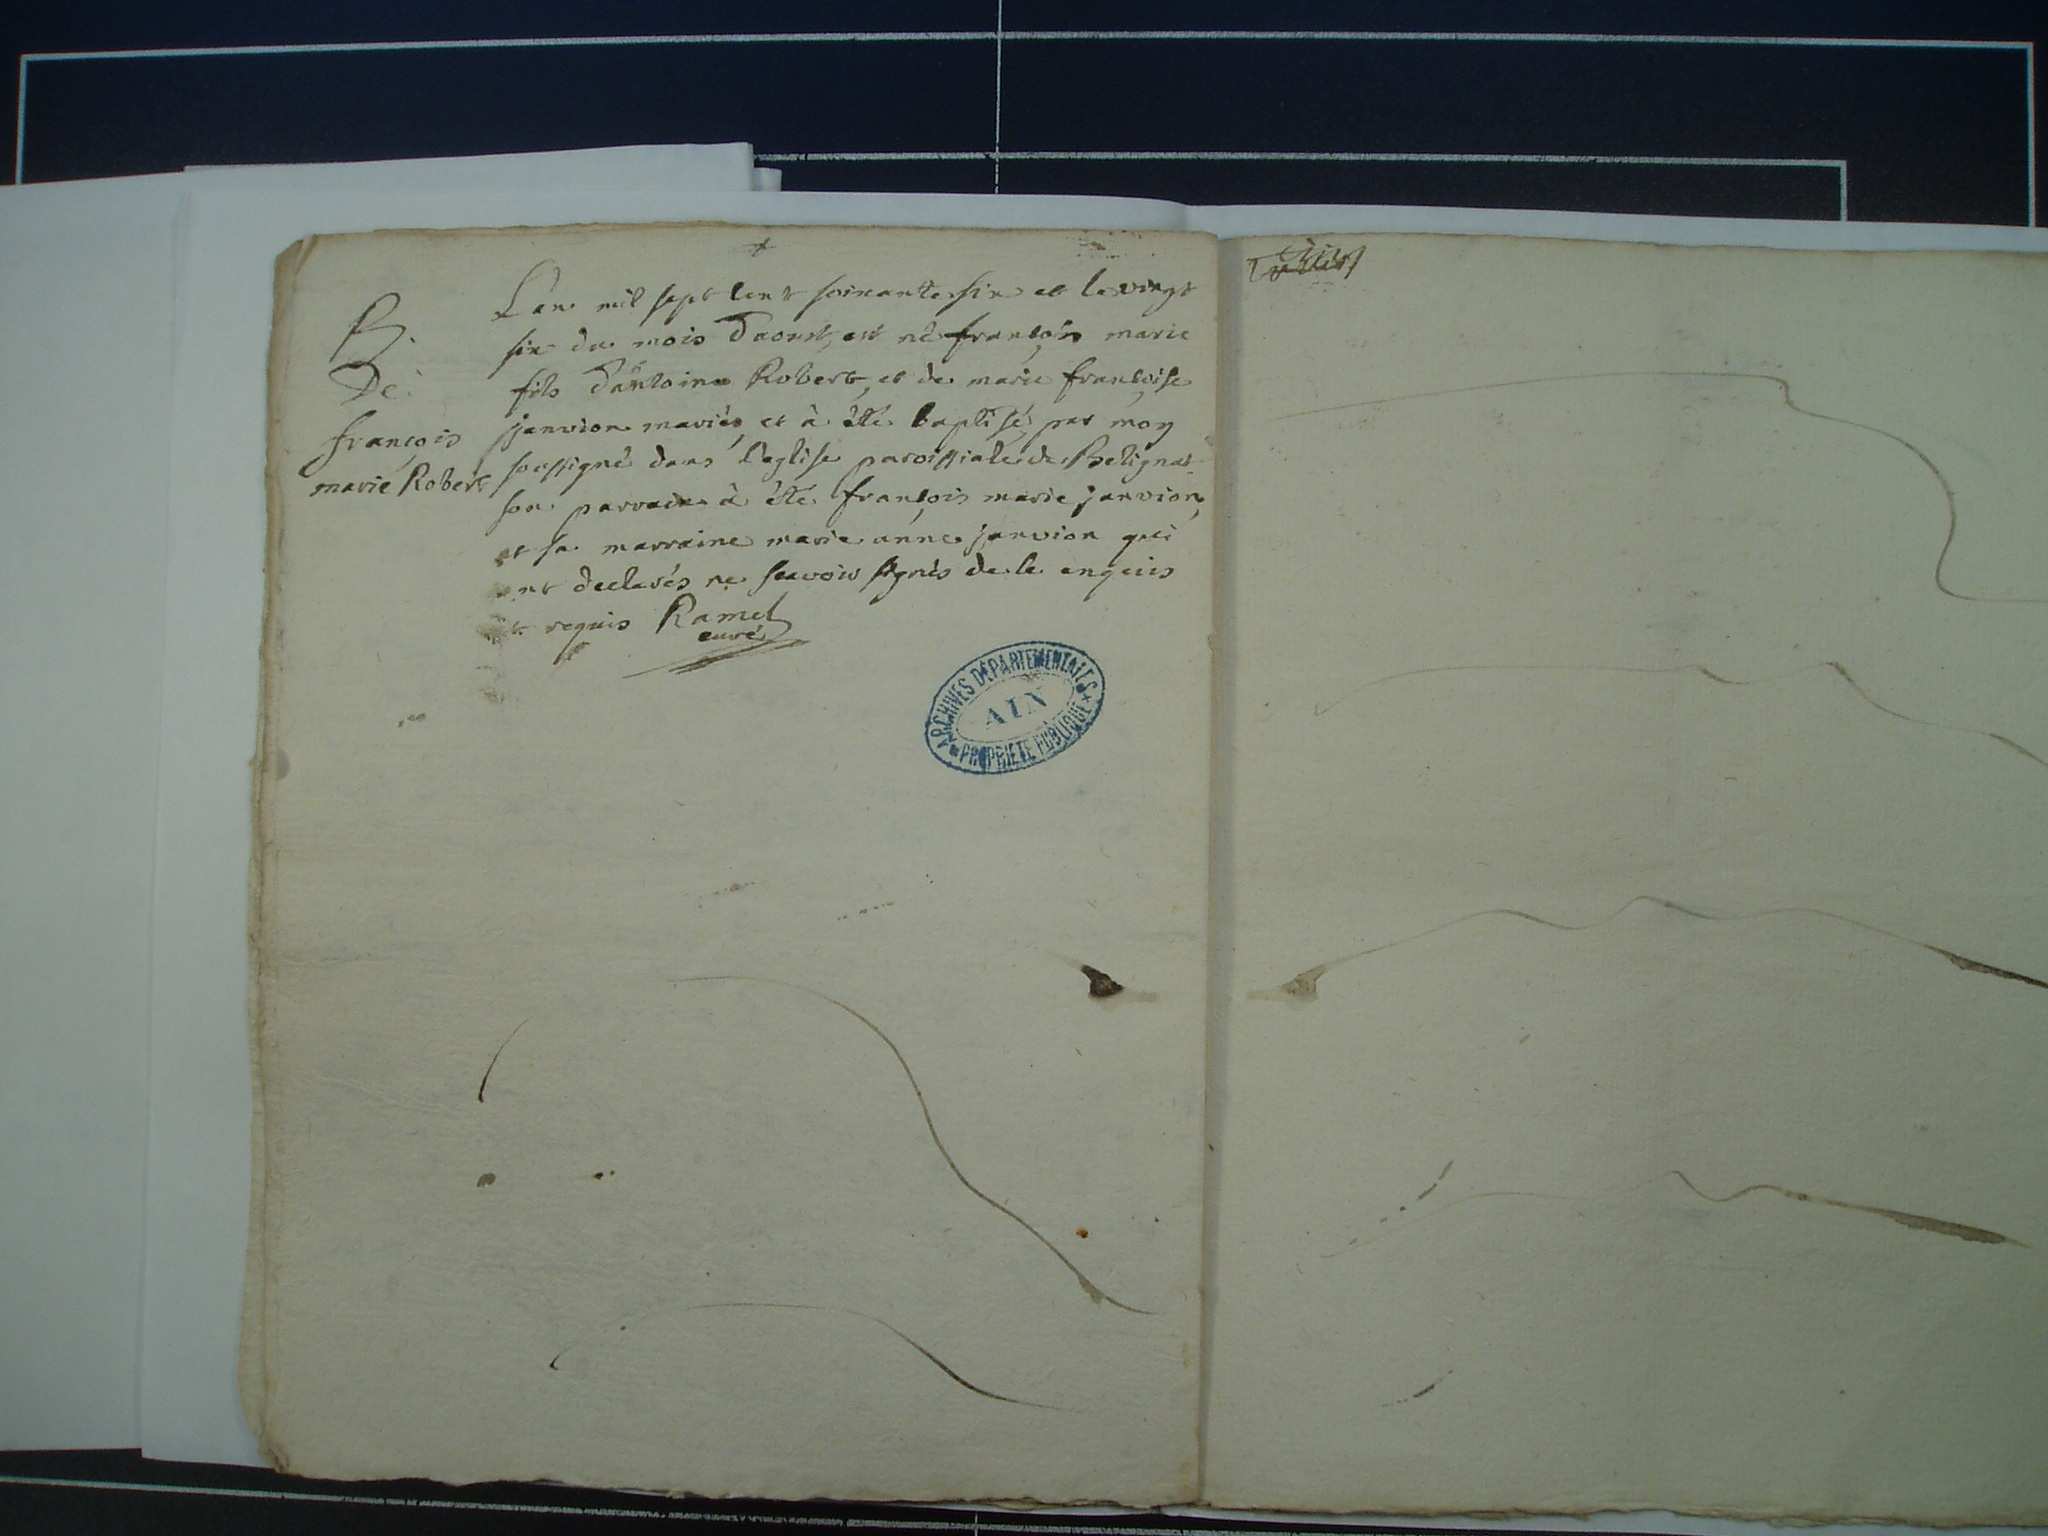 B.
De
françois
marie Robert
L'an mil sept cent soixante six et le vingt
six du mois d'aoust, est né françois marie
fils d'antoine Robert, et de marie françoise
janvion mariés, et à été baptisé par moy
soussigné dans l'eglise paroissiale de Belignat
son parrain à été françois marie janvion,
et sa marraine marie anne janvion qui
ont declarés ne scavoir signés de ce enquis
et requis Ramel
curé
ARCHIVES DÉPARTEMENTALES
AIN
PROPRIÉTÉ PUBLIQUE